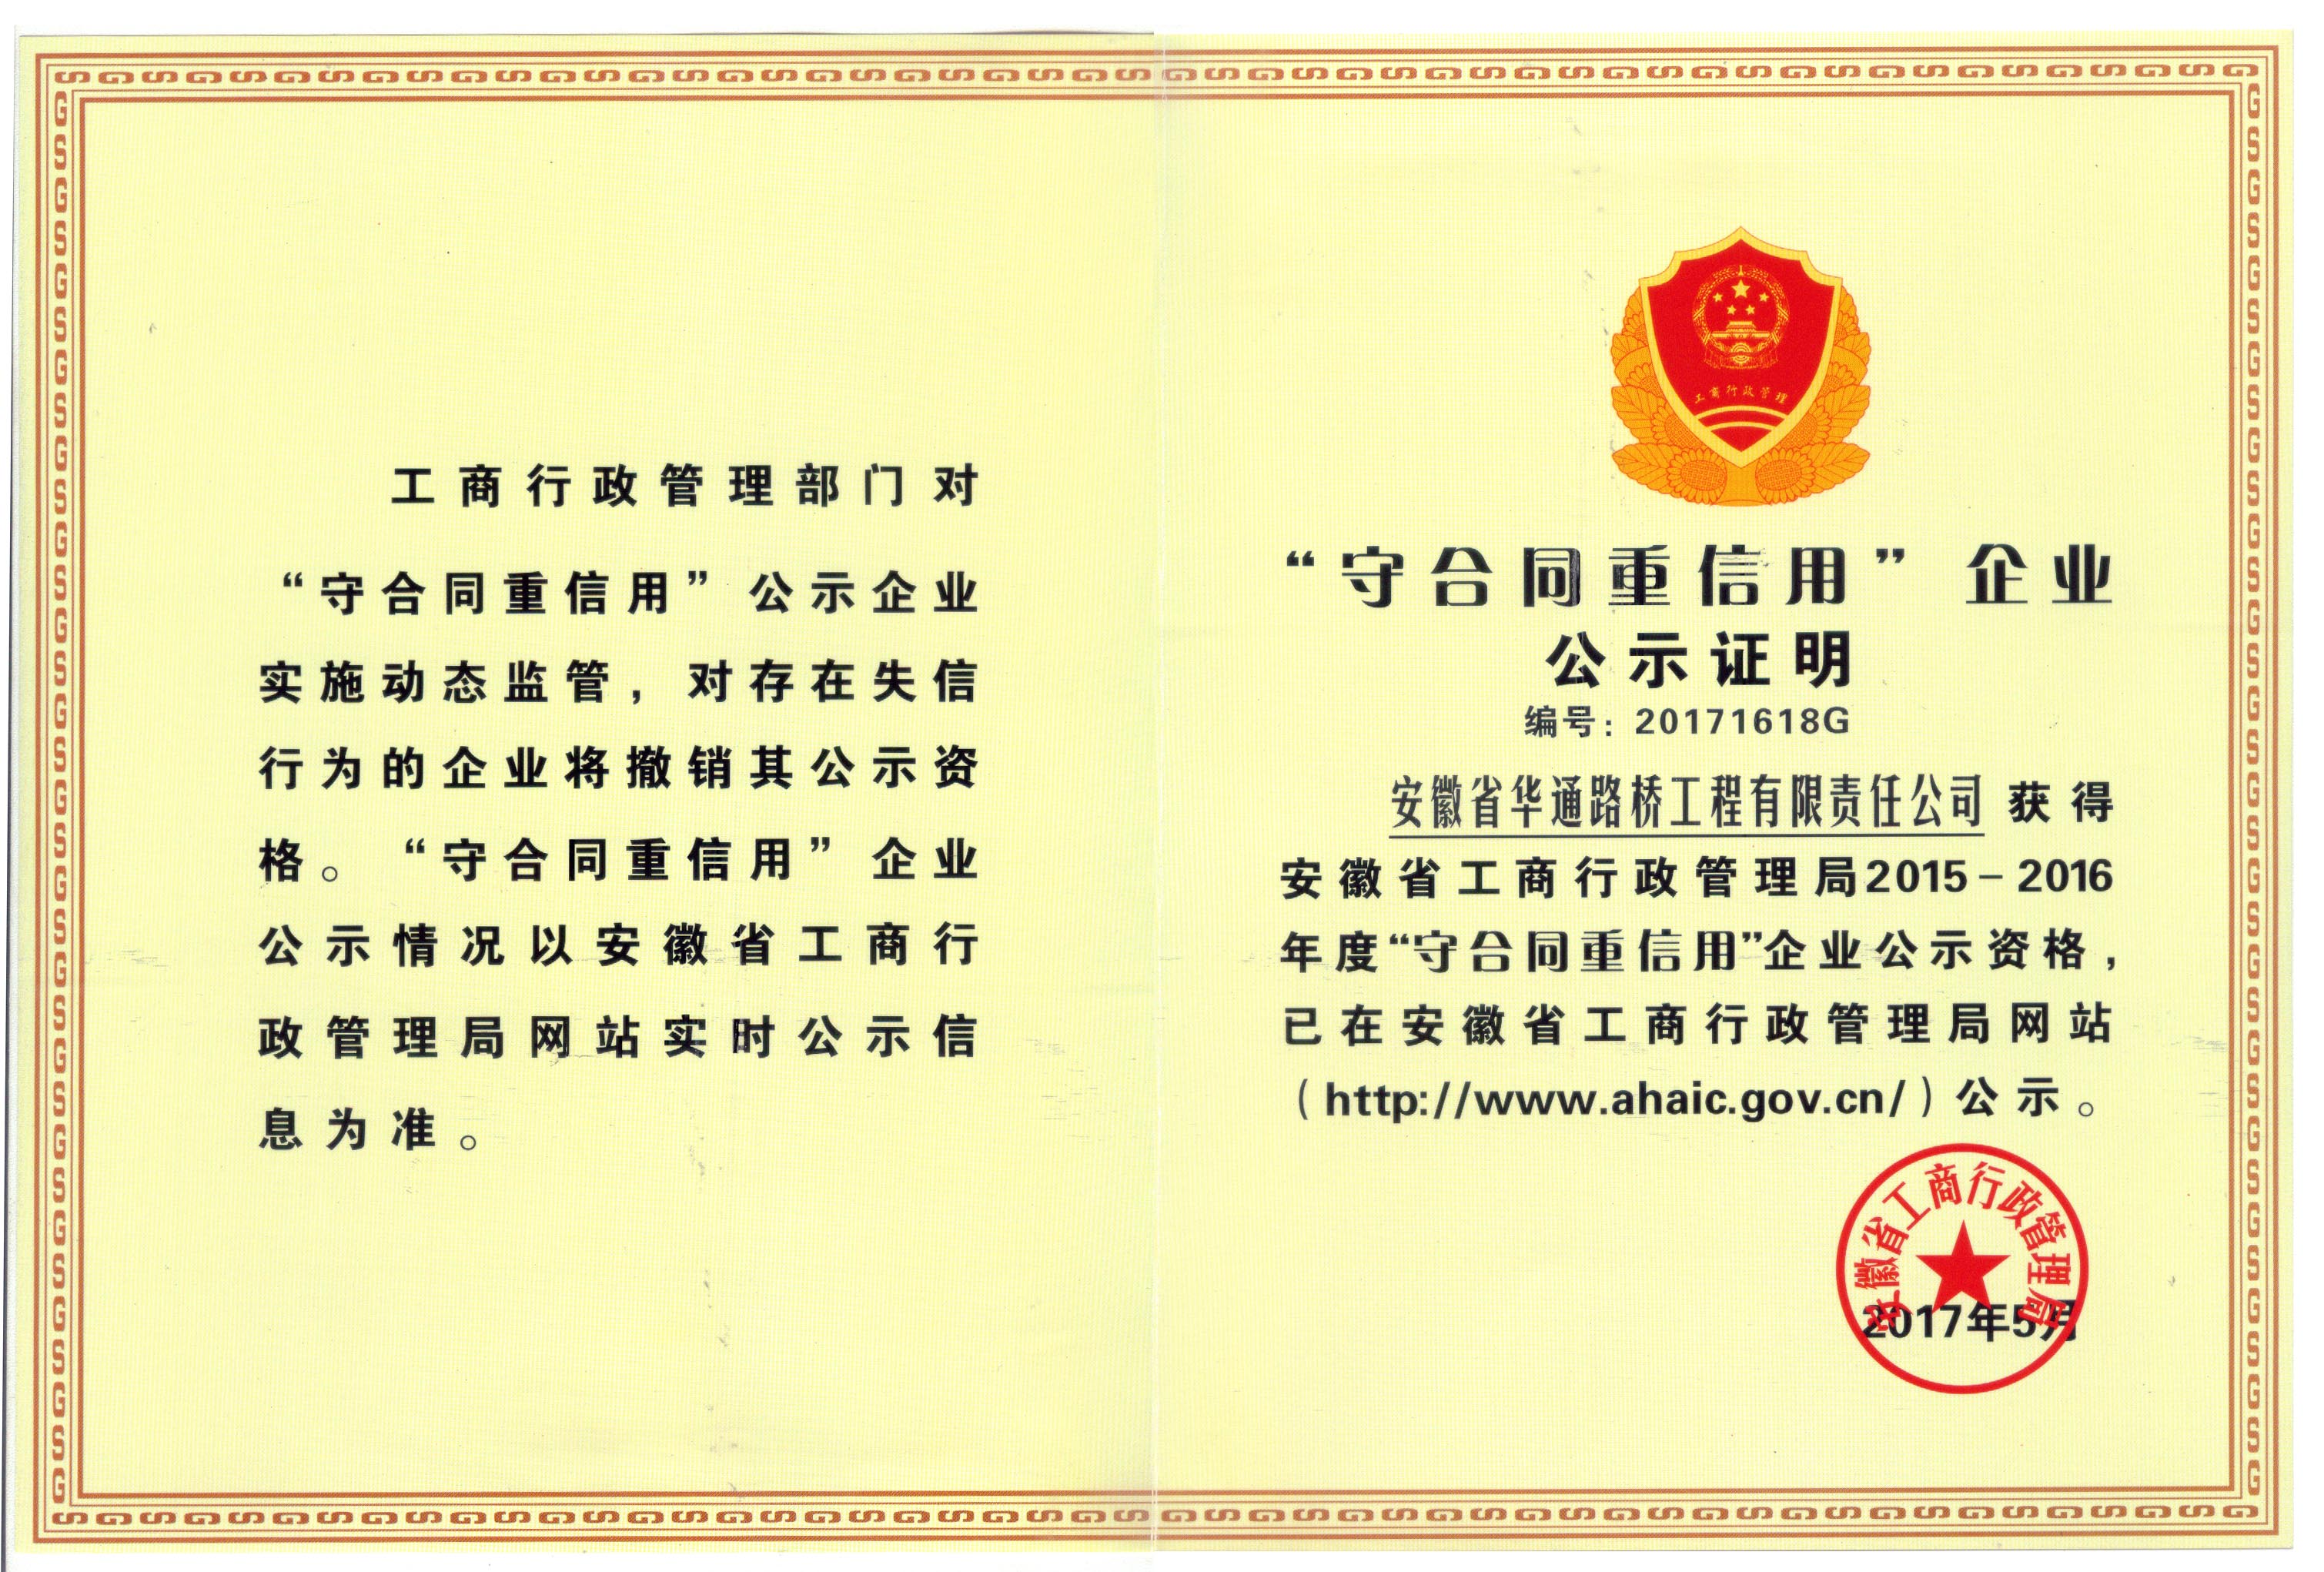 工商行政管理部门对
“守合同重信用”公示企业
实施动态监管，对存在失信
行为的企业将撤销其公示资
格。“守合同重信用”企业
公示情况以安徽省工商行
政管理局网站实时公示信
息为准。
工商行政管理
“守合同重信用”企业
公示证明
编号：20171618G
安徽省华通路桥工程有限责任公司 获得
安徽省工商行政管理局2015-2016
年度“守合同重信用”企业公示资格，
已在安徽省工商行政管理局网站
（http://www.ahaic.gov.cn/）公示。
安徽省工商行政管理局
2017年5月